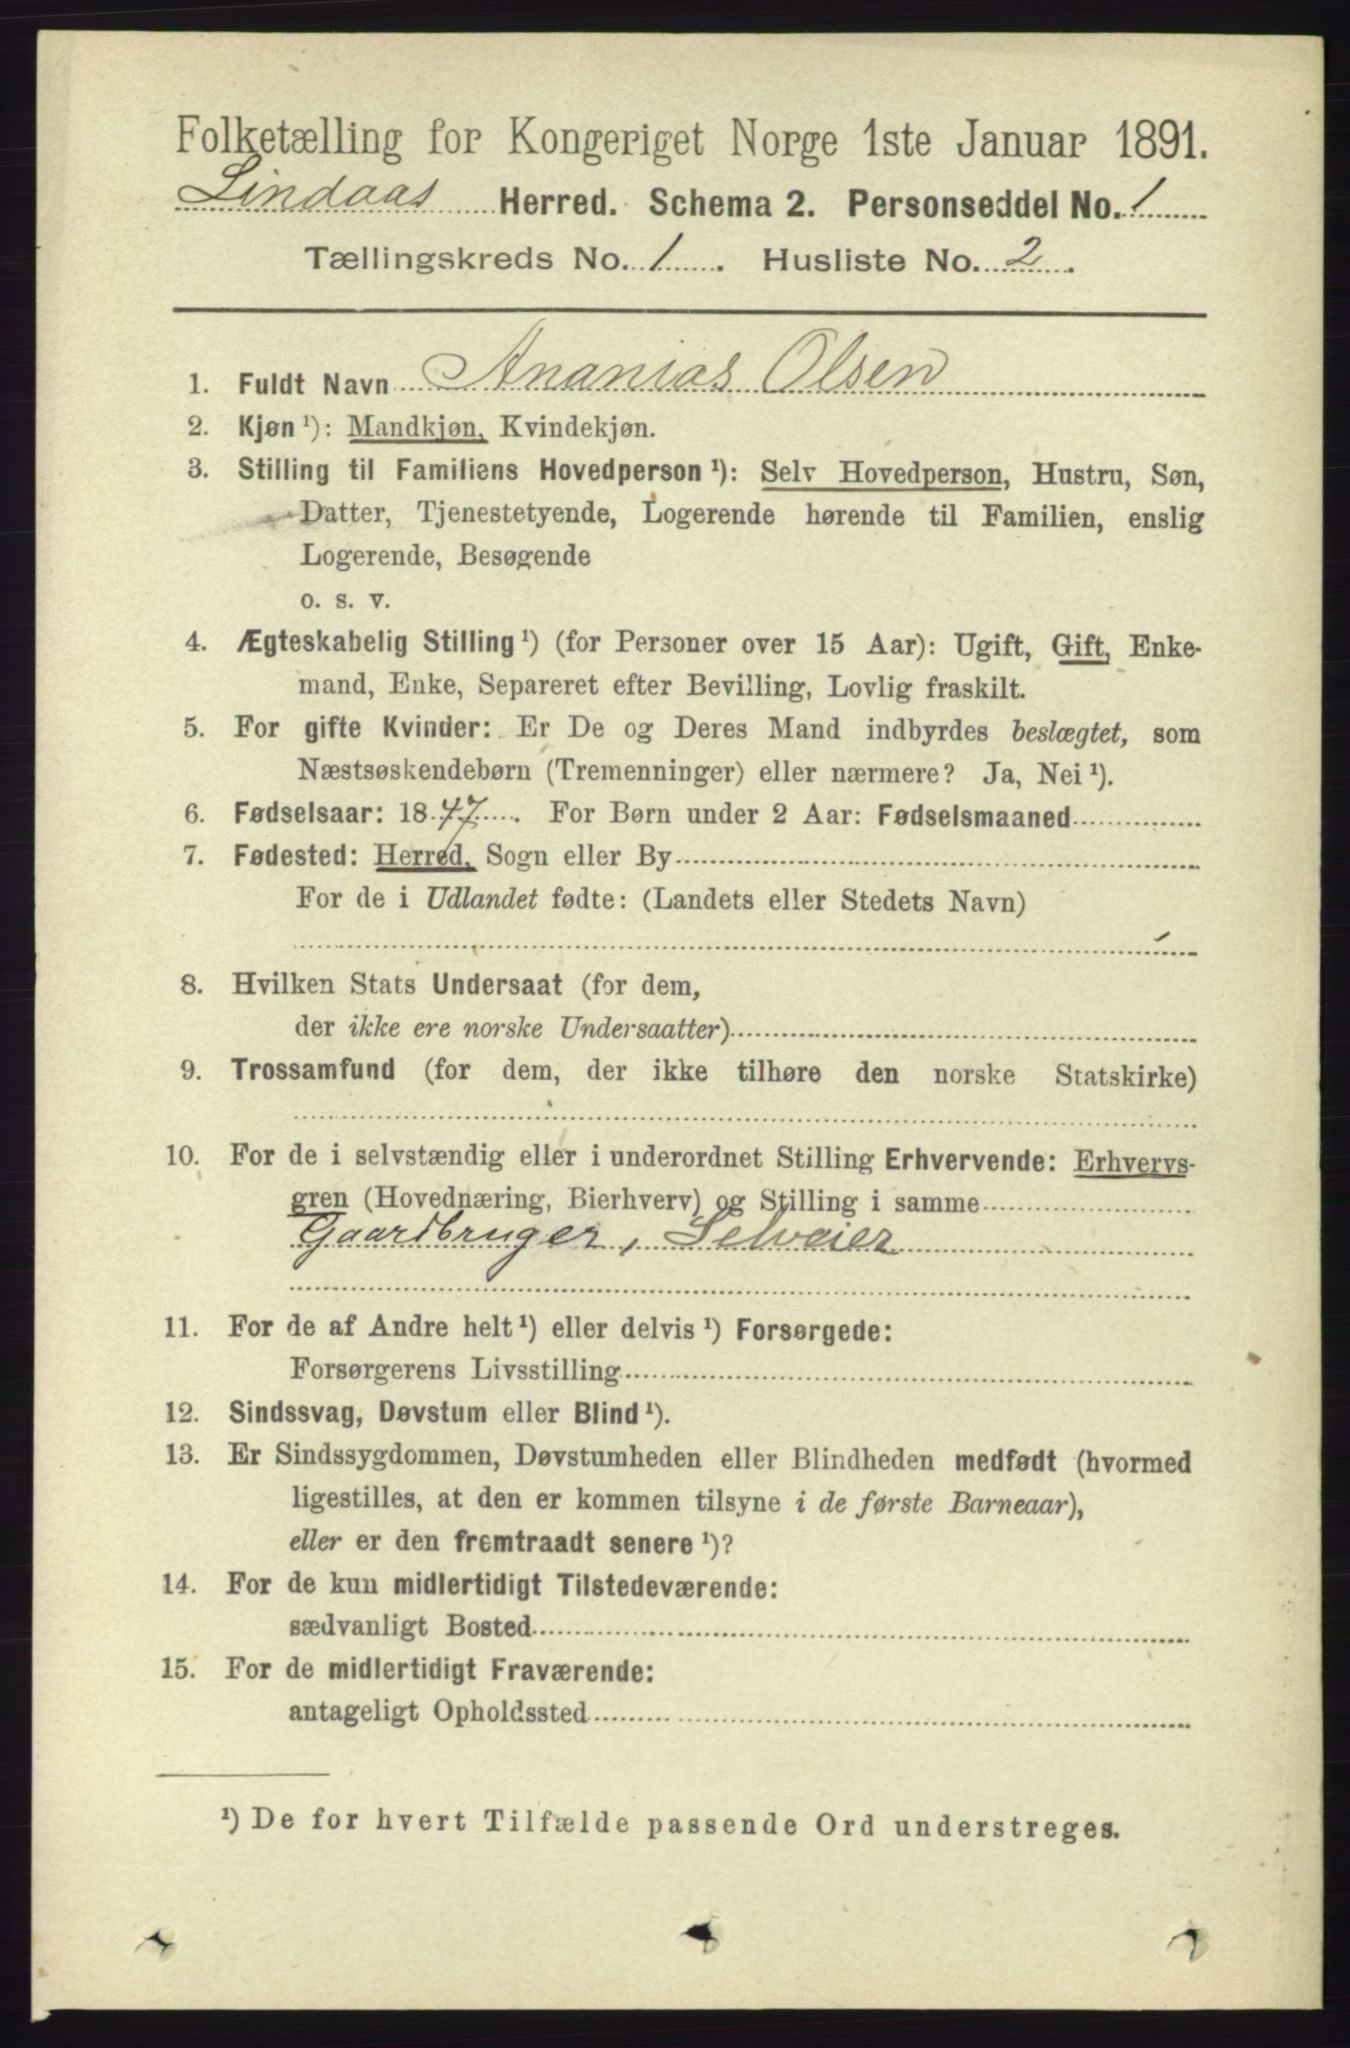 Folketælling for Kongeriget Norge 1ste Januar 1891.
Lindaas Herred. Schema 2. Personseddel No. 1
Tællingskreds No. 1. Husliste No. 2.
1. Fuldt Navn Ananias Olsen
2. Kjøn ¹): Mandkjøn, Kvindekjøn.
3. Stilling til Familiens Hovedperson ¹): Selv Hovedperson, Hustru, Søn,
Datter, Tjenestetyende, Logerende hørende til Familien, enslig
Logerende, Besøgende
o. s. v.
4. Ægteskabelig Stilling ¹) (for Personer over 15 Aar): Ugift, Gift, Enke-
mand, Enke, Separeret efter Bevilling, Lovlig fraskilt.
5. For gifte Kvinder: Er De og Deres Mand indbyrdes beslægtet, som
Næstsøskendebørn (Tremenninger) eller nærmere? Ja, Nei ¹).
6. Fødselsaar: 1847. For Børn under 2 Aar: Fødselsmaaned
7. Fødested: Herred, Sogn eller By
For de i Udlandet fødte: (Landets eller Stedets Navn)
8. Hvilken Stats Undersaat (for dem,
der ikke ere norske Undersaatter)
9. Trossamfund (for dem, der ikke tilhøre den norske Statskirke)
10. For de i selvstændig eller i underordnet Stilling Erhvervende: Erhvervs-
gren (Hovednæring, Bierhverv) og Stilling i samme
Gaardbruger, Selveier
11. For de af Andre helt ¹) eller delvis ¹) Forsørgede:
Forsørgerens Livsstilling
12. Sindssvag, Døvstum eller Blind ¹).
13. Er Sindssygdommen, Døvstumheden eller Blindheden medfødt (hvormed
ligestilles, at den er kommen tilsyne i de første Barneaar),
eller er den fremtraadt senere ¹)?
14. For de kun midlertidigt Tilstedeværende:
sædvanligt Bosted
15. For de midlertidigt Fraværende:
antageligt Opholdssted
¹) De for hvert Tilfælde passende Ord understreges.